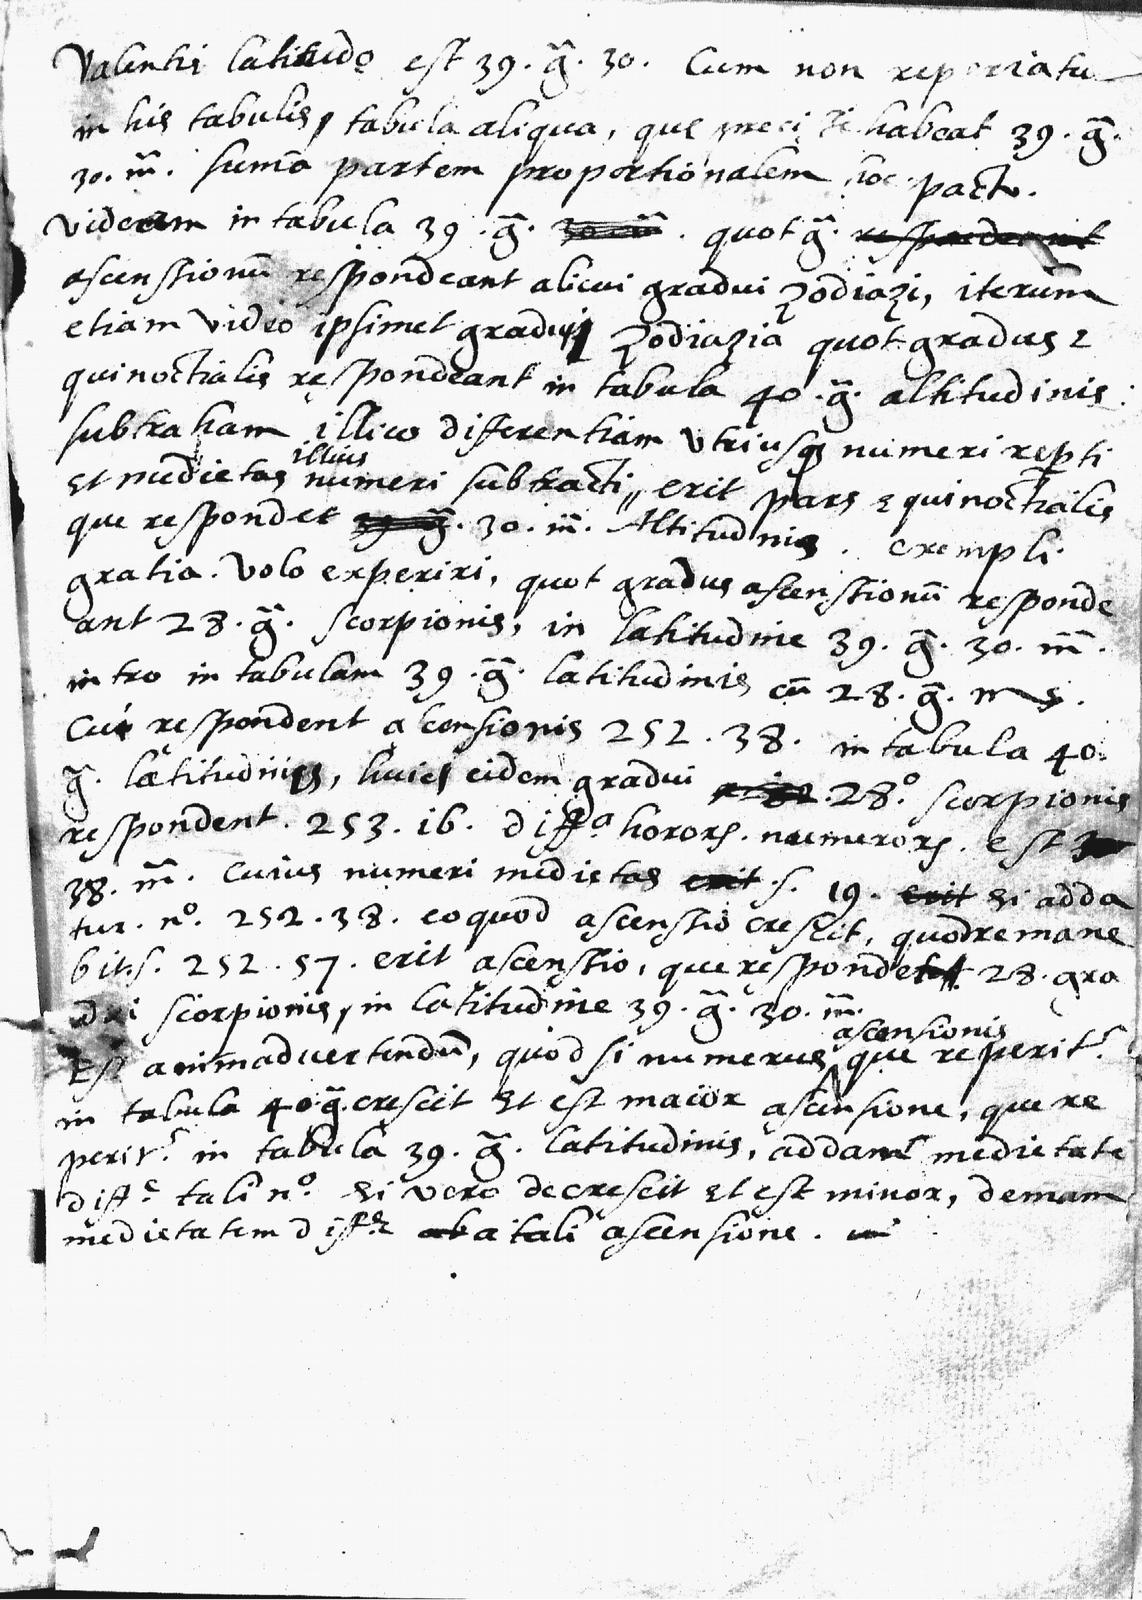 Valentis latitudo est 39. g̃. 30. Cum non reperiatu
in his tabulis, tabula aliqua, que habeat 39. g̃.
30. m̃. sumā partem proportionalem hoc pacto.
videam in tabula 39. g̃. 30 m̃. quot g̃. respondeant
ascenstionū respondeant alicui gradui zodiazi, iterum
etiam video ipsimet gradui zodiazia quot gradus e
quinoctialis respondeant in tabula 40. g̃. altitudinis.
subtraham illico diferentiam utriusq numeri reperti
illius
et medietas numeri subtracti, erit pars equinoctialis
que respondet 39 g̃. 30. m̃. Altitudinis. exempli
gratia. volo experiri, quot gradus ascenstionū responde
ant 28. g̃. scorpionis, in latitudine 39. g̃. 30. m̃.
intro in tabulam 39. g̃. latitudinis cū 28. g̃. m
Cui respondent acensionis 252. 38. in tabula 40.
g̃. latitudinis, huic eidem gradui 28.° scorpionis
respondent. 253. 16. diffª. horoꝝ. numeroꝝ. est
38. m̃. cuius numeri medietas erit .s. 19. erit si adda
tur. nº. 252. 38. eo quod ascenstio crescit, quod remane
bit .s. 252. 57. erit ascenstio, que respondet 28. gra
dui scorpionis, in latitudine 39. g̃. 30. m̃.
ascensionis
Est animadvertendū, quod si numerus, que reperit.ʳ
in tabula 40 g̃. crescit et est maior ascensione, que re
perit.ʳ in tabula 39. g̃. latitudinis, addam medietatē
diffᵉ tali nº. si vero decrescit et est minor, demam
medietatem diffᵉ ab a tali ascensione.